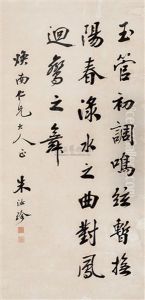 玉管初調鳴弦暫撫
陽春淥水之曲對鳳
迴鸞之舞
煥南仁兄大人正
朱汝珍